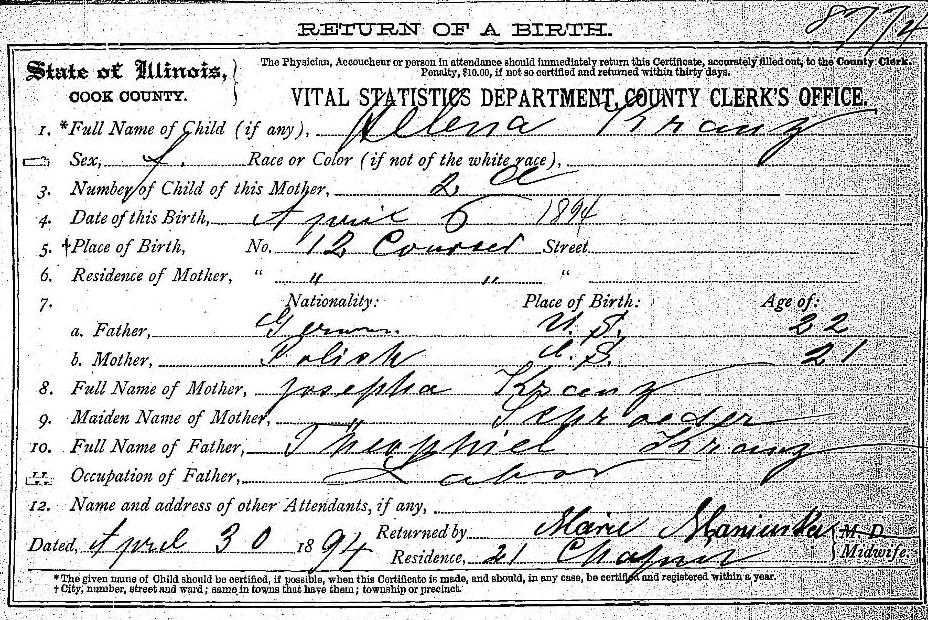 8774
RETURN OF A BIRTH.
State of Illinois,
COOK COUNTY.
The Physician, Accoucheur or person in attendance should immediately return this Certificate, accurately filled out, to the County Clerk.
Penalty, $10.00, if not so certified and returned within thirty days.
VITAL STATISTICS DEPARTMENT, COUNTY CLERK'S OFFICE.
1. *Full Name of Child (if any), Helena Kranz
Sex, f. Race or Color (if not of the white race),
3. Number of Child of this Mother, 2 d
4. Date of this Birth, April 6 1894
5. †Place of Birth, No. 12 Street
6. Residence of Mother, " " " "
7. Nationality: Place of Birth: Age of:
a. Father, German U. S. 22
b. Mother, Polish U. S. 21
8. Full Name of Mother, Josepha Kranz
9. Maiden Name of Mother, Schroeder
10. Full Name of Father, Theophiel Kranz
11. Occupation of Father, Labor
12. Name and address of other Attendants, if any,
Dated, April 30 1894 Returned by Marie M. D.
Residence, 21 Midwife.
*The given name of Child should be certified, if possible, when this Certificate is made, and should, in any case, be certified and registered within a year.
†City, number, street and ward; same in towns that have them; township or precinct.